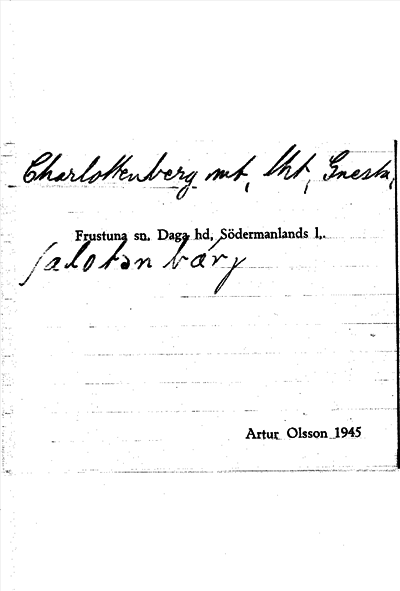 Charlottenberg mt, lht, Gnesta,
Frustuna sn. Daga hd, Södermanlands l,.
ʃalotənbærj
Artur Olsson 1945